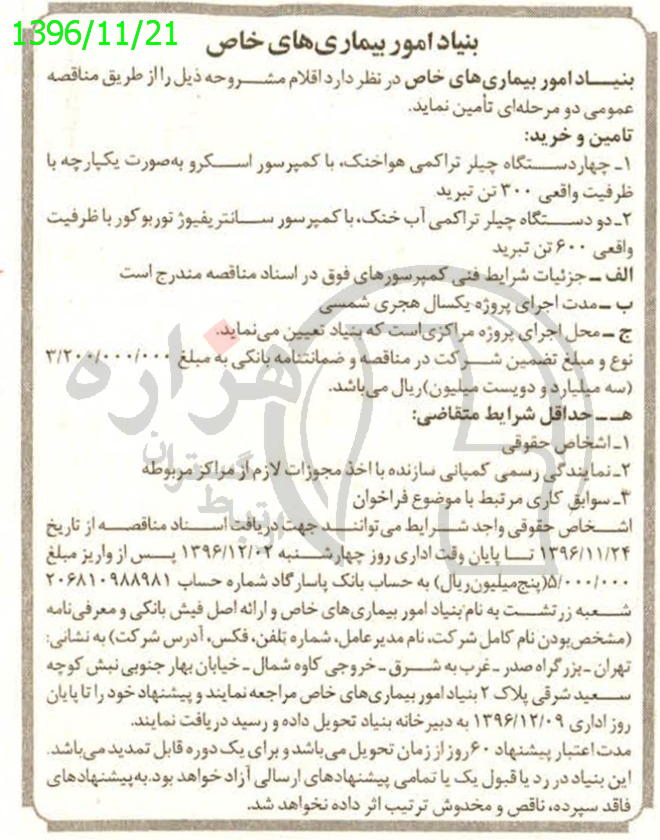 1396/11/21
بنیاد امور بیماری‌های خاص
بنیـــاد امور بیماری‌های خاص در نظر دارد اقلام مشـــروحه ذیل را از طریق مناقصه
عمومی دو مرحله‌ای تأمین نماید.
تامین و خرید:
۱ـ چهاردســـتگاه چیلر تراکمی هواخنک، با کمپرسور اســـکرو به‌صورت یکپارچه با
ظرفیت واقعی ۳۰۰ تن تبرید
۲ـ دو دســـتگاه چیلر تراکمی آب خنک، با کمپرسور ســـانتریفیوژ توربو کور با ظرفیت
واقعی ۶۰۰ تن تبرید
الف ــ جزئیات شرایط فنی کمپرسورهای فوق در اسناد مناقصه مندرج است
ب ــ مدت اجرای پروژه یکسال هجری شمسی
ج ــ محل اجرای پروژه مراکزی‌است که بنیاد تعیین می‌نماید.
نوع و مبلغ تضمین شـــرکت در مناقصه و ضمانتنامه بانکی به مبلغ ۳/۲۰۰/۰۰۰/۰۰۰
(سه میلیارد و دویست میلیون)ریال می‌باشد.
هـ ــ حداقل شرایط متقاضی:
۱ـ اشخاص حقوقی
۲ـ نمایندگی رسمی کمپانی سازنده با اخذ مجوزات لازم از مراکز مربوطه
۳ـ سوابق کاری مرتبط با موضوع فراخوان
اشـــخاص حقوقی واجد شـــرایط می‌تواننـــد جهت دریافت اســـناد مناقصـــه از تاریخ
۱۳۹۶/۱۱/۲۴ تـــا پایان وقت اداری روز چهارشـــنبه ۱۳۹۶/۱۲/۰۲ پـــس از واریز مبلغ
۵/۰۰۰/۰۰۰(پنج‌میلیون‌ریال) به حساب بانک پاسارگاد شماره حساب ۲۰۶۸۱۰۹۸۸۹۸۱
شـــعبه زرتشـــت به نام بنیاد امور بیماری‌های خاص و ارائه اصل فیش بانکی و معرفی‌نامه
(مشخص‌بودن نام کامل شرکت، نام مدیرعامل، شماره تلفن، فکس، آدرس شرکت) به نشانی:
تهران ـ بزرگراه صدر ـ غرب به شـــرق ـ خروجی کاوه شمال ـ خیابان بهار جنوبی نبش کوچه
ســـعید شرقی پلاک ۲ بنیاد امور بیماری‌های خاص مراجعه نمایند و پیشنهاد خود را تا پایان
روز اداری ۱۳۹۶/۱۲/۰۹ به دبیرخانه بنیاد تحویل داده و رسید دریافت نمایند.
مدت اعتبار پیشنهاد ۶۰ روز از زمان تحویل می‌باشد و برای یک دوره قابل تمدید می‌باشد.
این بنیاد در رد یا قبول یک یا تمامی پیشنهادهای ارسالی آزاد خواهد بود. به‌پیشنهادهای
فاقد سپرده، ناقص و مخدوش ترتیب اثر داده نخواهد شد.
هزاره
گستران
ارتباط